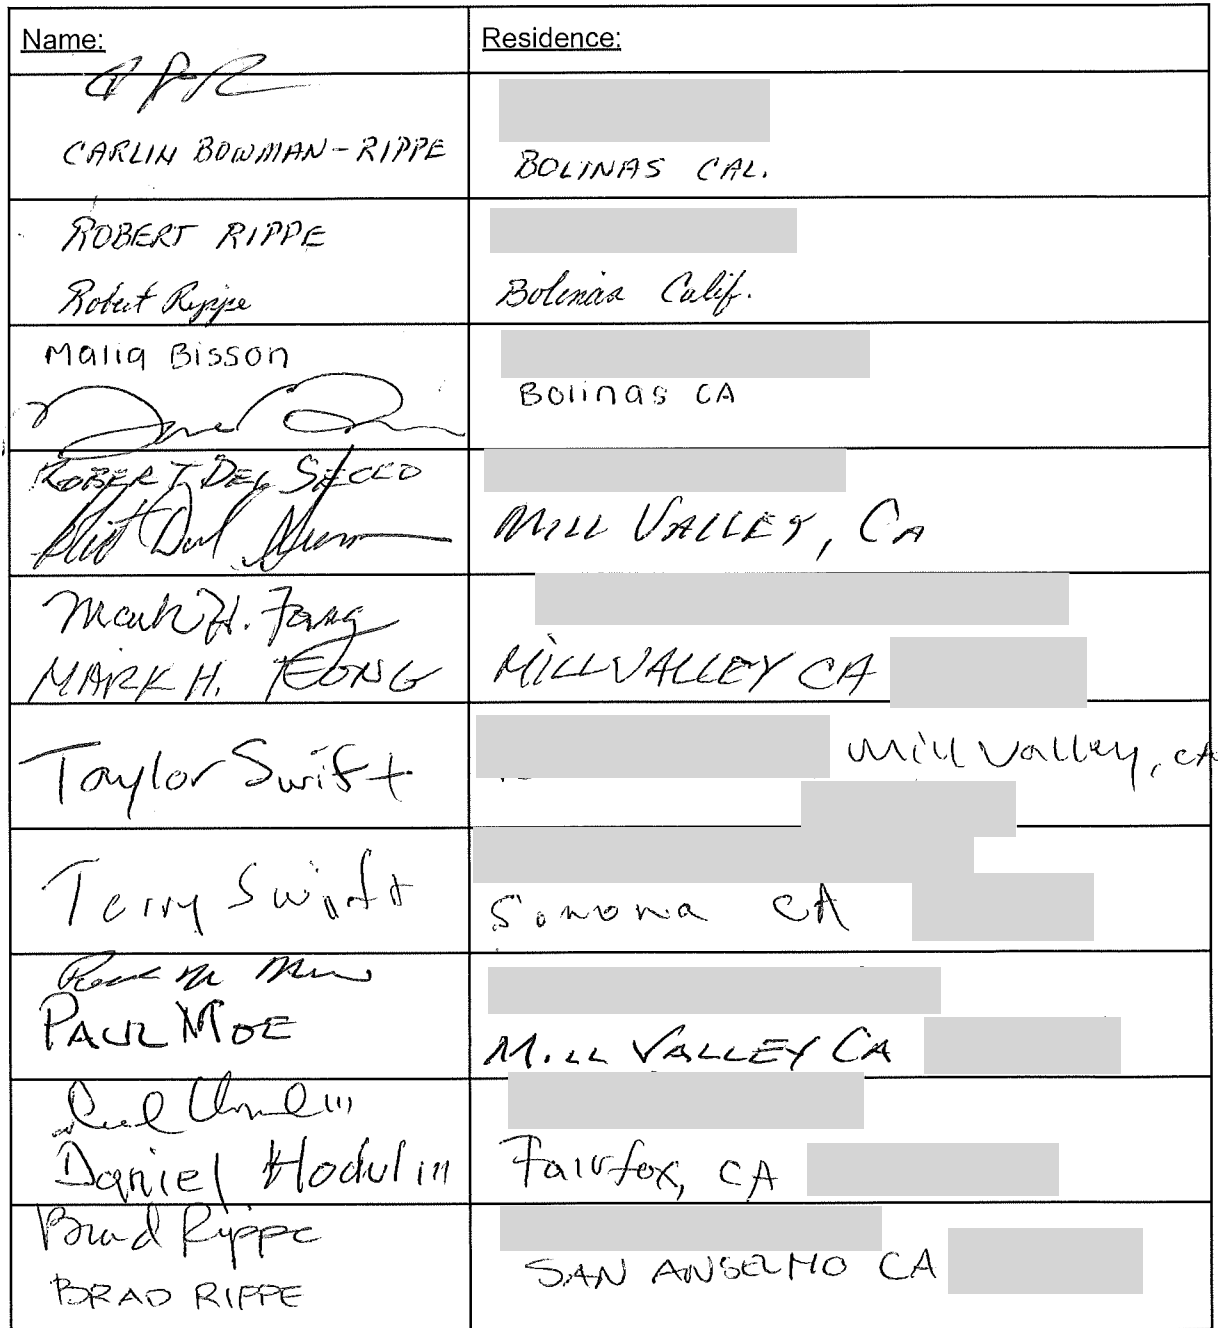 Name: Residence:
CARLIN BOWMAN-RIPPE
BOLINAS CAL.
ROBERT RIPPE
Robert Rippe
Bolinas Calif.
Malia Bisson
Bolinas CA
ROBERT DEL SECCO
MILL VALLEY, CA
Mark H. Fong
MARK H. FONG
MILL VALLEY CA
Taylor Swift
Mill Valley, CA
Terry Swift
Sonoma CA
PAUL MOE
MILL VALLEY CA
Daniel Hodul III
Fairfax, CA
Brad Rippe
BRAD RIPPE
SAN ANSELMO CA